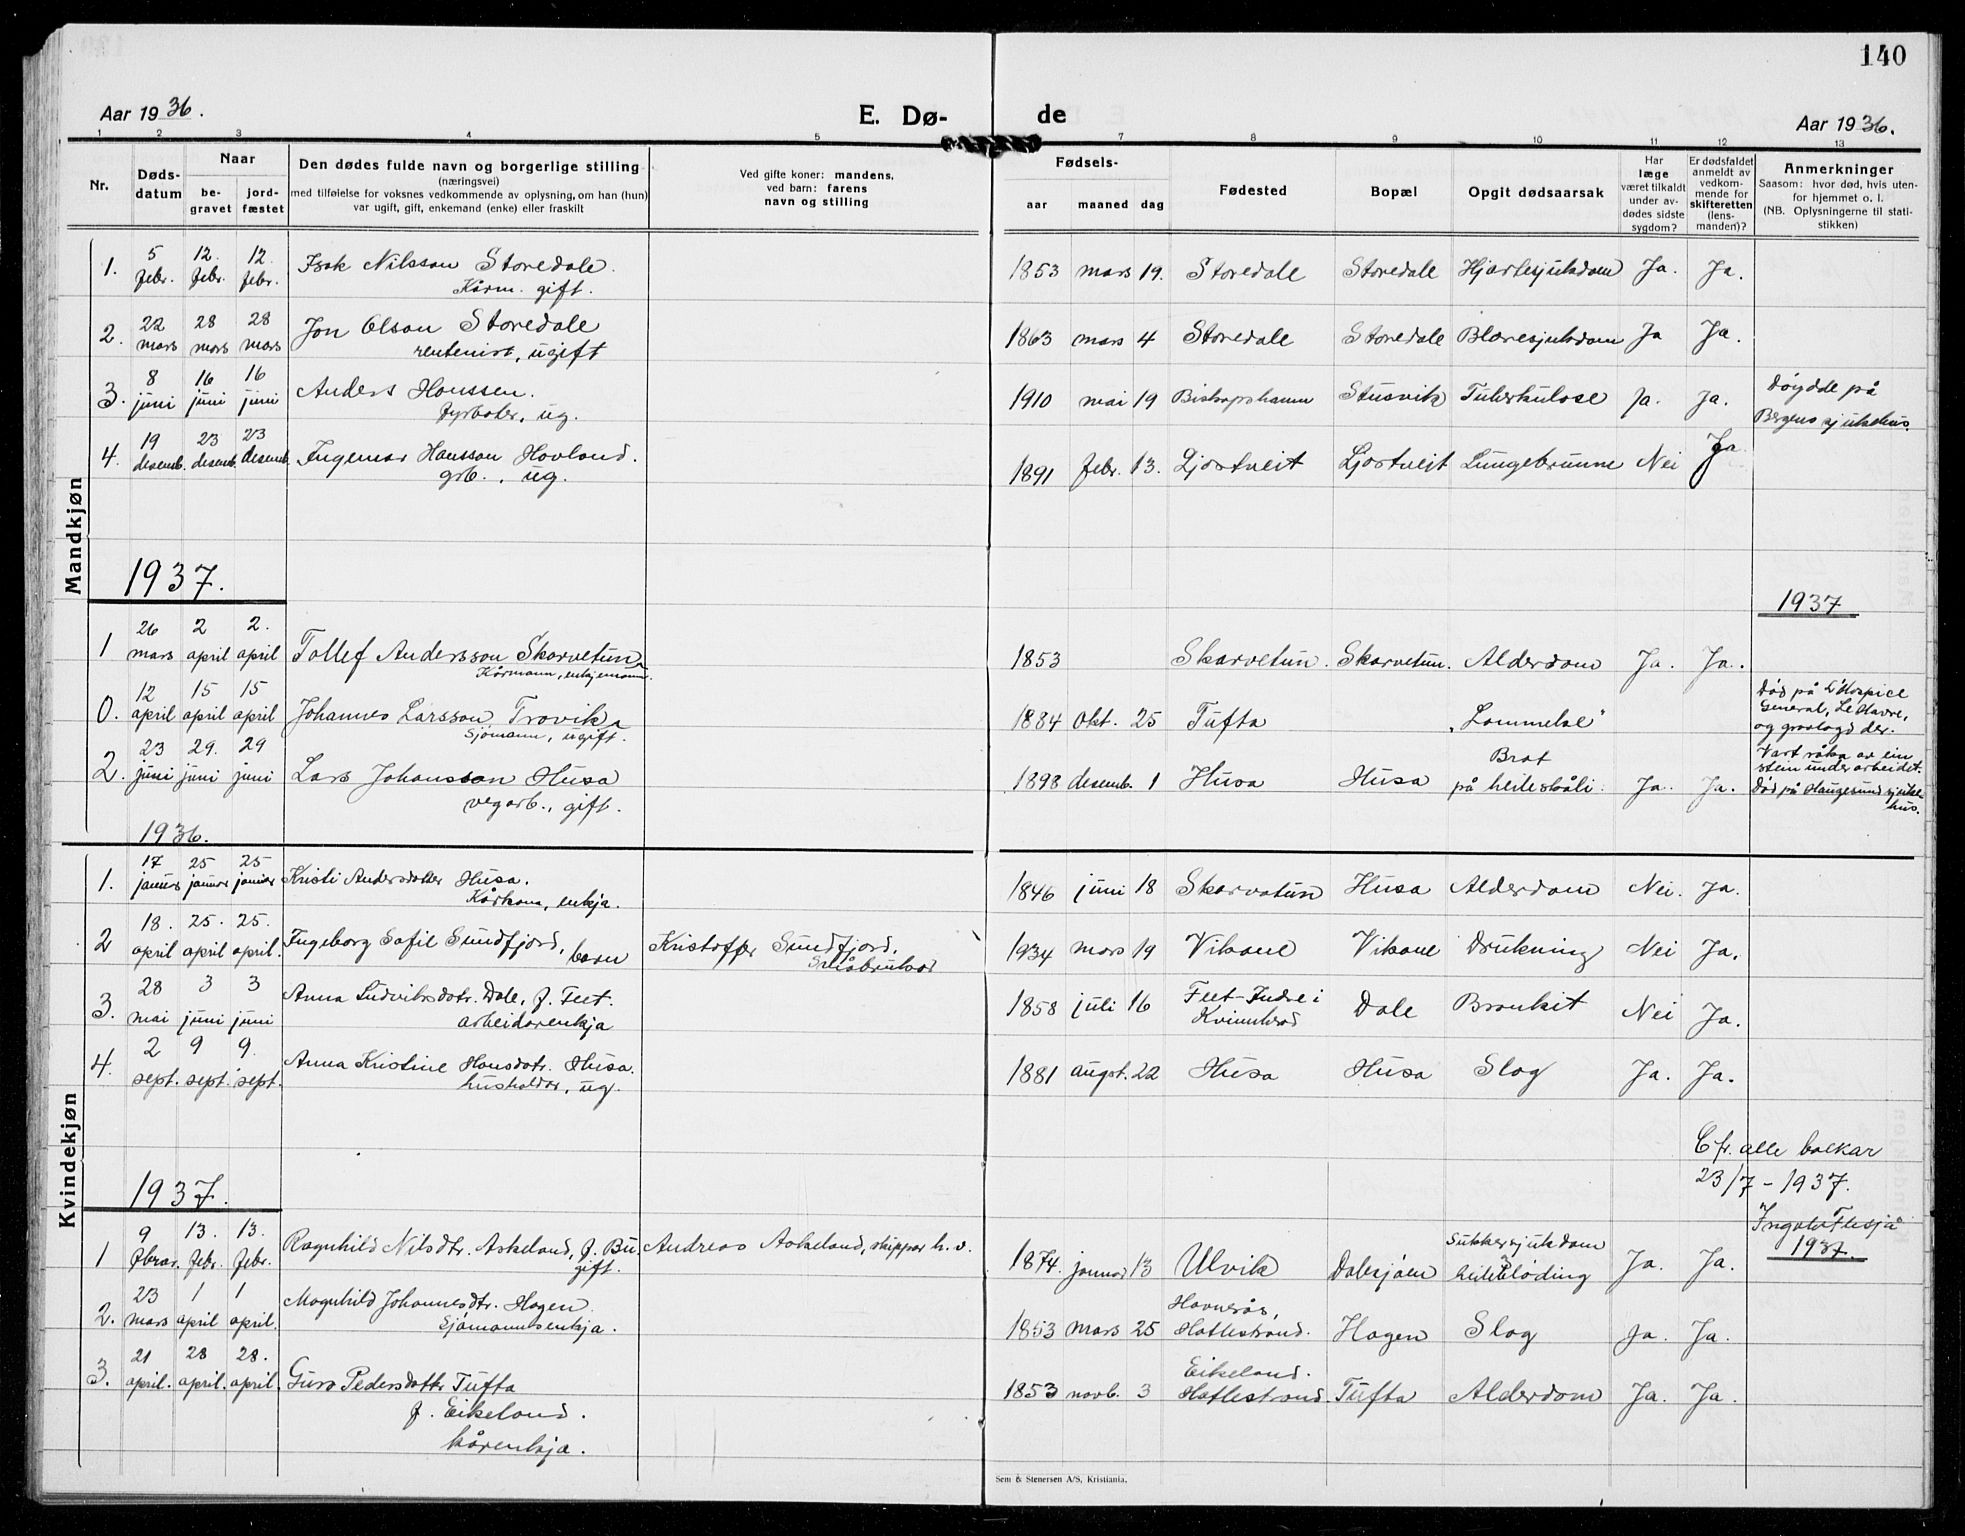 140
Aar 1936.
E. Dø-
de
Aar 1936.
1 2 3 4 5 7 8 9 10 11 12 13
Nr.
Døds-
datum
Naar
be-
gravet
jord-
fæstet
Den dødes fulde navn og borgerlige stilling
(næringsvei)
med tilføielse for voksnes vedkommende av oplysning, om han (hun)
var ugift, gift, enkemand (enke) eller fraskilt
Ved gifte koner: mandens,
ved barn: farens
navn og stilling
Fødsels-
aar maaned dag
Fødested
Bopæl
Opgit dødsaarsak
Har
læge
været tilkaldt
under av-
dødes sidste
sygdom?
Er dødsfaldet
anmeldt av
vedkom-
mende for
skifteretten
(lens-
manden)?
Anmerkninger
Saasom: hvor død, hvis uten-
for hjemmet o. l.
(NB. Oplysningerne til stati-
stikken)
Mandkjøn
1. 5 febr. 12. febr. 12. febr. Isak Nilsson Storedale.
Kårm. gift.
1853 mars 19. Storedale Storedale Hjartesjukdom Ja. Ja.
2. 22 mars 28 mars 28 mars Jon Olson Storedale
rentenist, ugift
1863 mars 4 Storedale Storedale Blæresjukdom Ja Ja.
3. 8 juni 16 juni 16 juni Anders Hanssen.
fyrbøter, ug.
1910 mai 19 Bishopshamn Stusvik Tuberkulose Ja. Ja. Døydde på
Bergens sjukehus.
4. 19 desemb. 23 desemb. 23 desemb. Ingemar Hansson Hovland.
grb., ug.
1891 febr. 13. Ljostveit Ljostveit Lungebrunne Nei Ja
1937.
1937
1 26 mars 2 april 2. april Tollef Andersson Skarvetun
Kårmann, enkjemann.
1853 Skarvetun. Skarvetun. Alderdom Ja. Ja.
0. 12 april 15 april 15 april Johannes Larsson Trovik
Sjømann, ugift.
1884 okt. 25 Tufta „Lommelse" Død på L'Hospice
General, Le Havre,
og gravlagd der.
2. 23 juni 29. juni 29 juni Lars Johansson Husa
vegarb., gift.
1898 desemb. 1 Husa Husa Brot
på heileskåli. Ja. Ja. Vart råka av ein
stein under arbeidet.
Død på Haugesund sjuke-
hus.
1936.
Kvindekjøn
1. 17 januar 25 januar 25 januar Kristi Andersdotter Husa.
Kårkona, enkja.
1846 juni 18 Skarvatun Husa Alderdom Nei. Ja.
2 18. april 25. april 25. april. Ingeborg Sofie Sundfjord, barn Kristoffer Sundfjord,
Småbrukar
1934 mars 19 Vikane Vikane Drukning Nei Ja.
3. 28 mai 3 juni 3 juni Anna Ludviksdotr. Dale, f. Feet.
arbeidarenkja
1858 juli 16 Feet-Indre i
Kvinnherad Dale Bronkit Nei Ja.
4. 2 sept. 9 sept. 9. sept. Anna Kristine Hansdotr. Husa.
husholdar, ug.
1881 augst. 22 Husa Husa Slag Ja. Ja.
Cfr. alle bolkar
23/7 - 1937.
Ingolv Flesjå
1937.
1937.
1 9 fbrar. 13. febr. 13. febr. Ragnhild Nilsdtr. Askeland, f. Bu
gift. Andreas Askeland, skippar h. v.
1874. januar 13 Ulvik Dalesjøen Sukkersjukdom
heilebløding Ja. Ja.
2. 23 mars 1 april 1 april. Magnhild Johannesdtr. Hagen
Sjømannsenkja.
1853 mars 25 Havnerås,
Hatlestrand. Hagen Slag Ja. Ja.
3. 21 april. 28 april. 28. april. Guro Pedersdotter Tufta
f. Eikeland.
kårenkja.
1853 novb. 3 Eikeland.
Hatlestrand. Tufta Alderdom Ja. Ja.
Sem & Stenersen A/S, Kristiania.